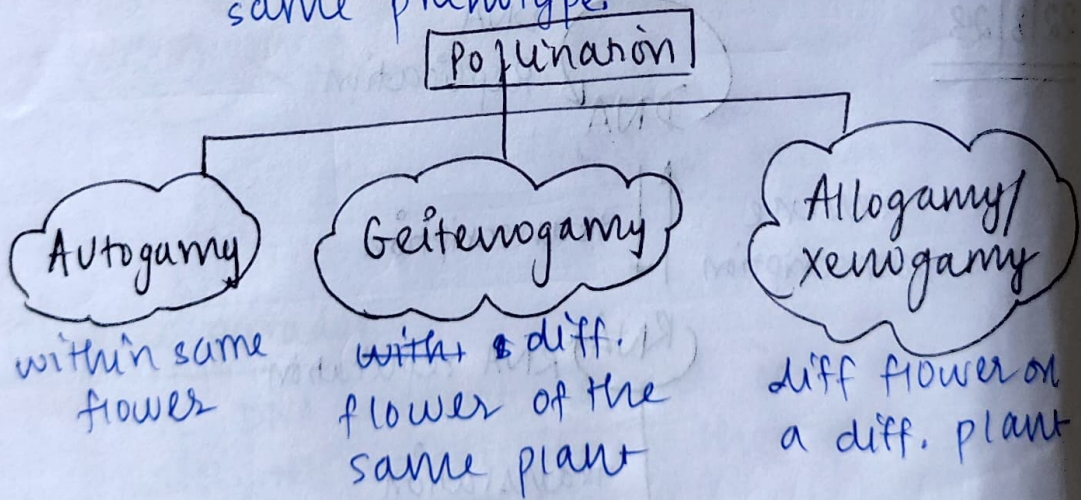 same phenotype.
Pollination
Autogamy
within same
flower
Geitenogamy
with diff.
flower of the
same plant
Allogamy/
Xenogamy
diff flower on
a diff. plant
DNA